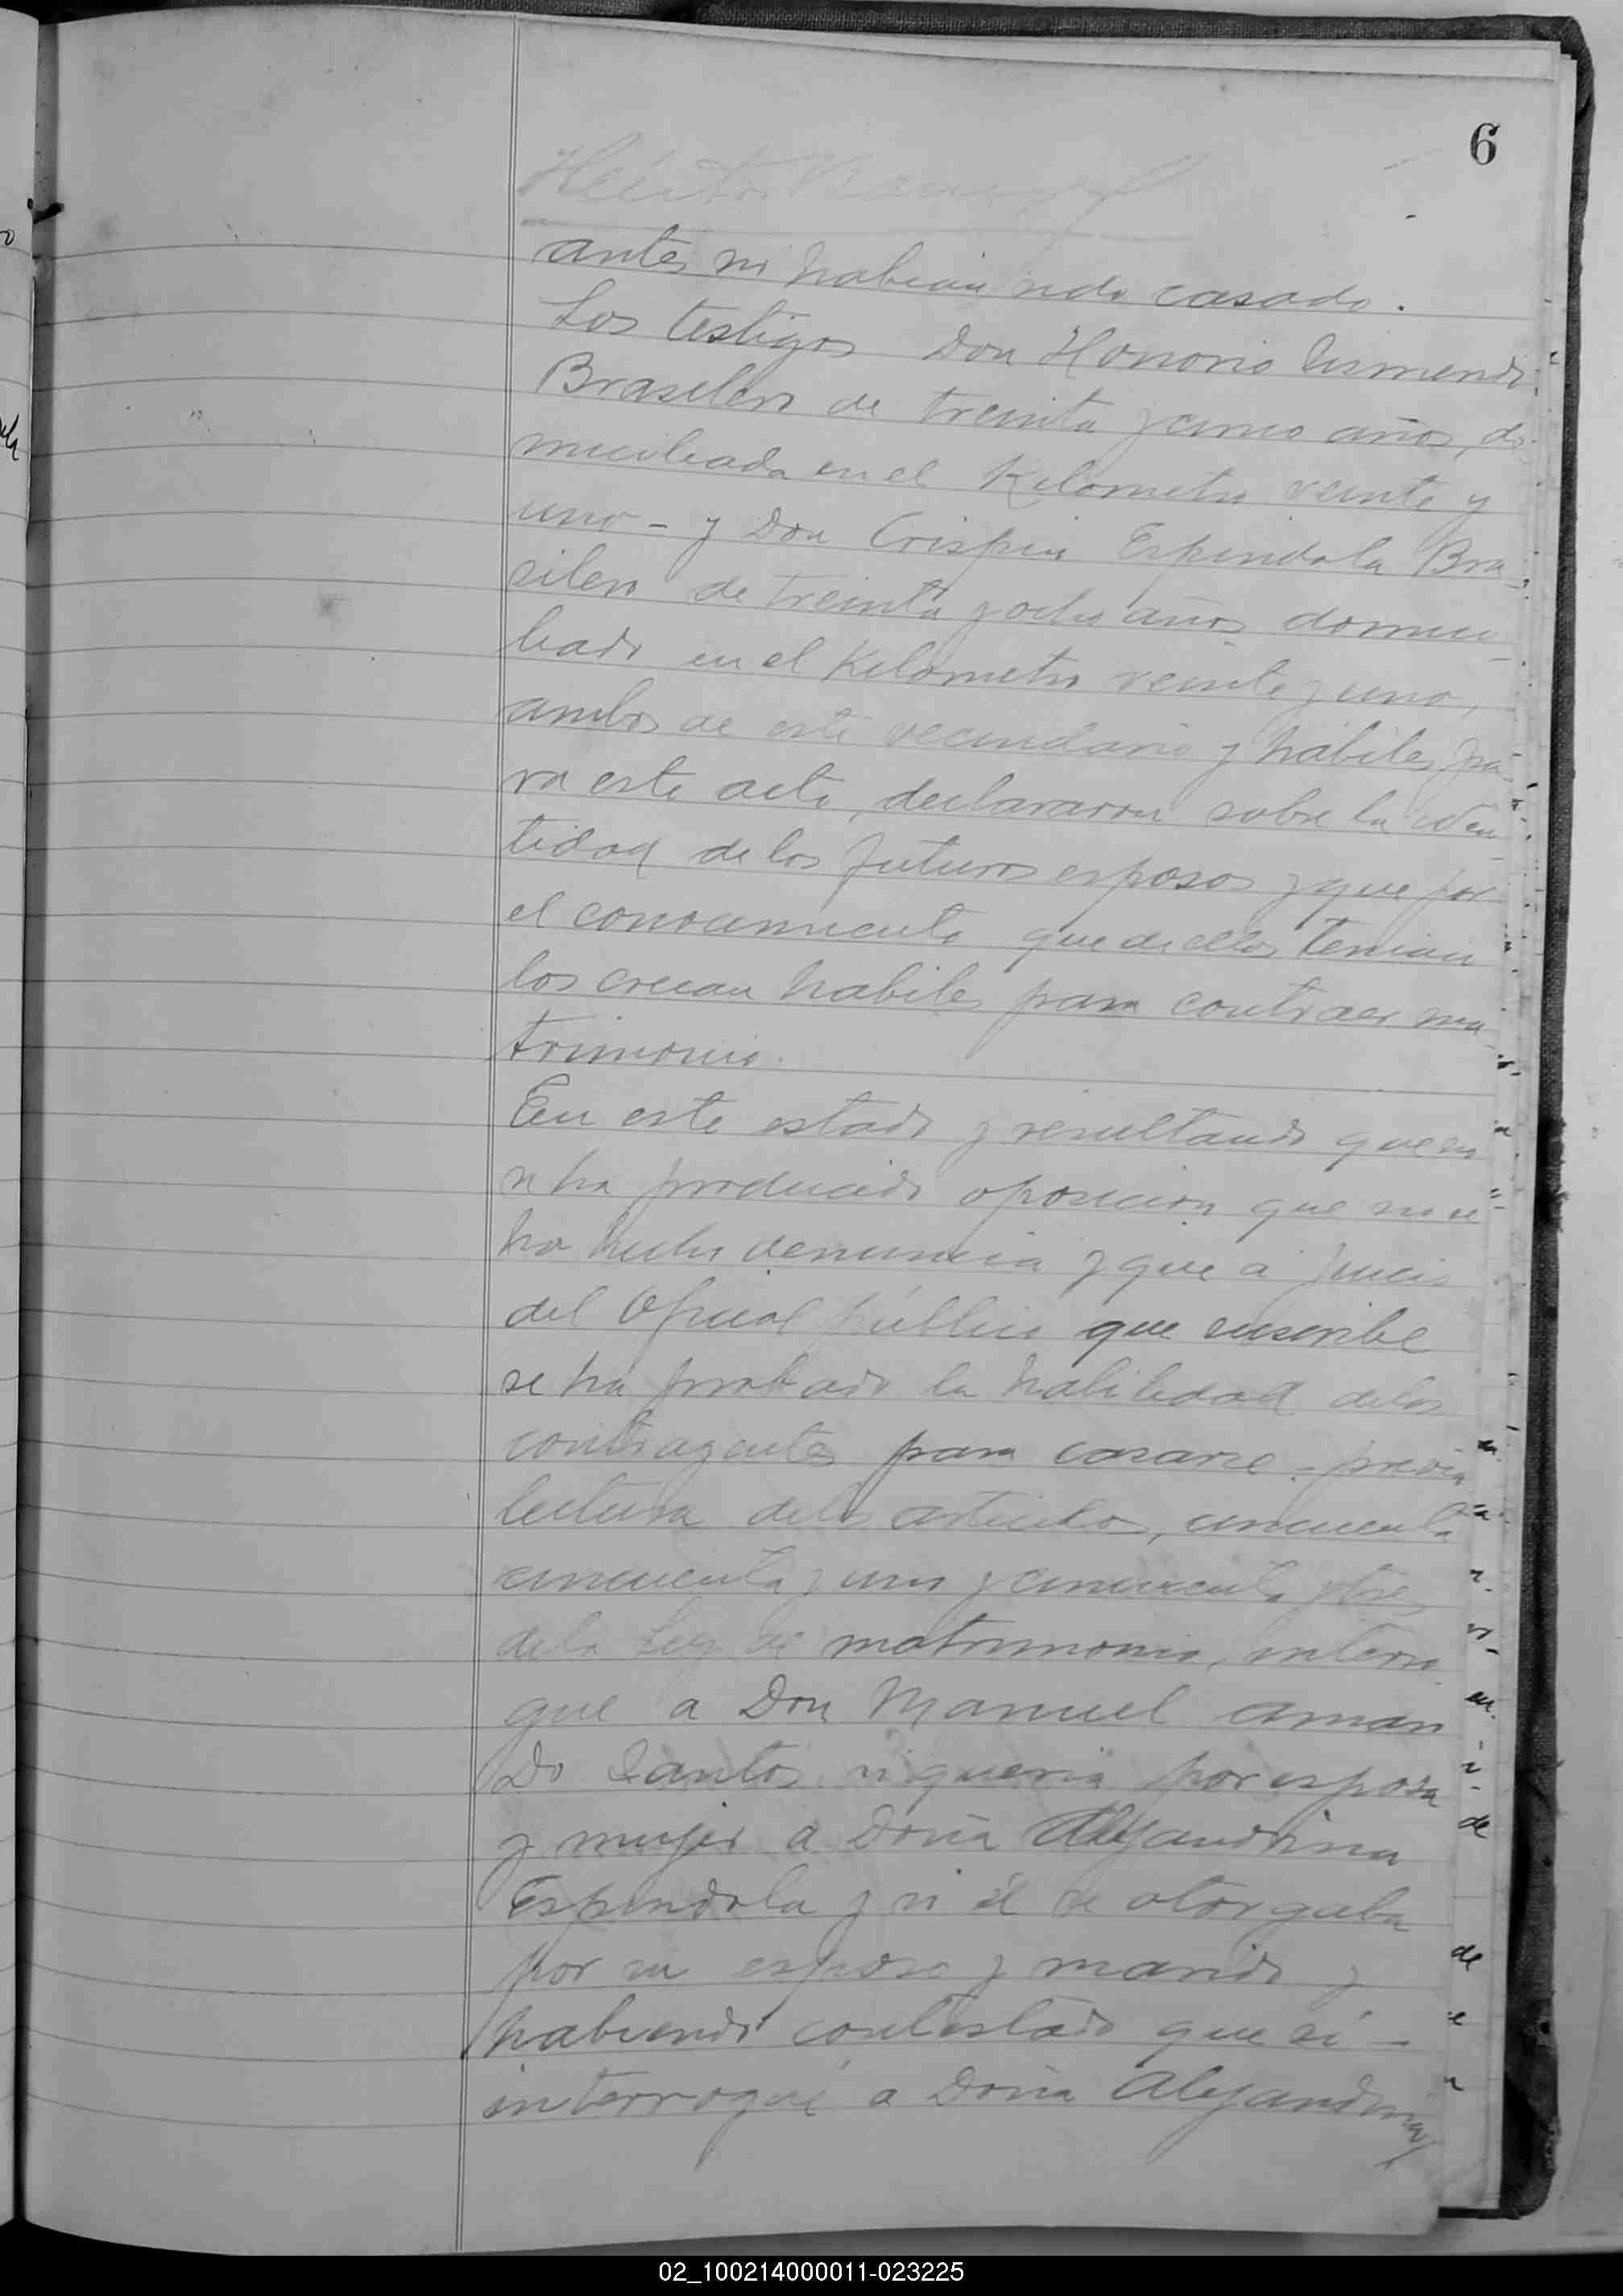 6
antes ni habian sido casado.
Los testigos Don Honorio
Brasilero de treinta y cinco años, do-
miciliada en el Kilometro veinte y
uno - y Don Crispin Espindola Bra-
silero de treinta y ocho años domici-
liado en el Kilometro veinte y uno,
ambos de este vecindario y hábiles pa-
ra este acto, declararon sobre la iden-
tidad de los futuros esposos y que por
el conocimiento que de ellos tenian
los creian habiles para contraer ma-
trimonio.
En este estado y resultando que no
se ha producido oposicion que no se
ha hecho denuncia y que a juicio
del Oficial público que suscribe
se ha probado la habilidad de los
contrayentes para casarse - previa
lectura de los articulos, cincuenta
cincuenta y uno y cincuenta y tres
de la Ley de matrimonio, interro
gue a Don Manuel
Do Santos si queria por esposa
y mujer a Doña Alejandrina
Espindola y si él se otorgaba
por su esposo y marido y
habiendo contestado que sí -
interrogué a Doña Alejandrina
02_100214000011-023225